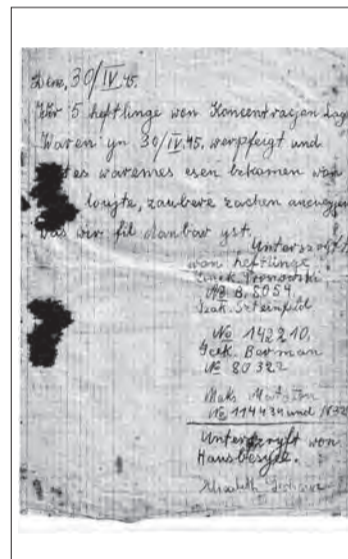 Den, 30/IV.45.
Wir 5 heftlinge won Koncentracjen Lage
Waren yn 30/IV.45. werpfeigt und
tes waremes esen bekamen won
louyte, zaubere zachen
was wir fil danbar yst.
Unterszryft
won heftlinge
Pronowski
No B. 8054.
Izak. Szteinfeld
No 142210.
Icek. Borman
No 80322
Maks
No 114434 und
Unterszryft won
Hausbesyce.
Elisabeth